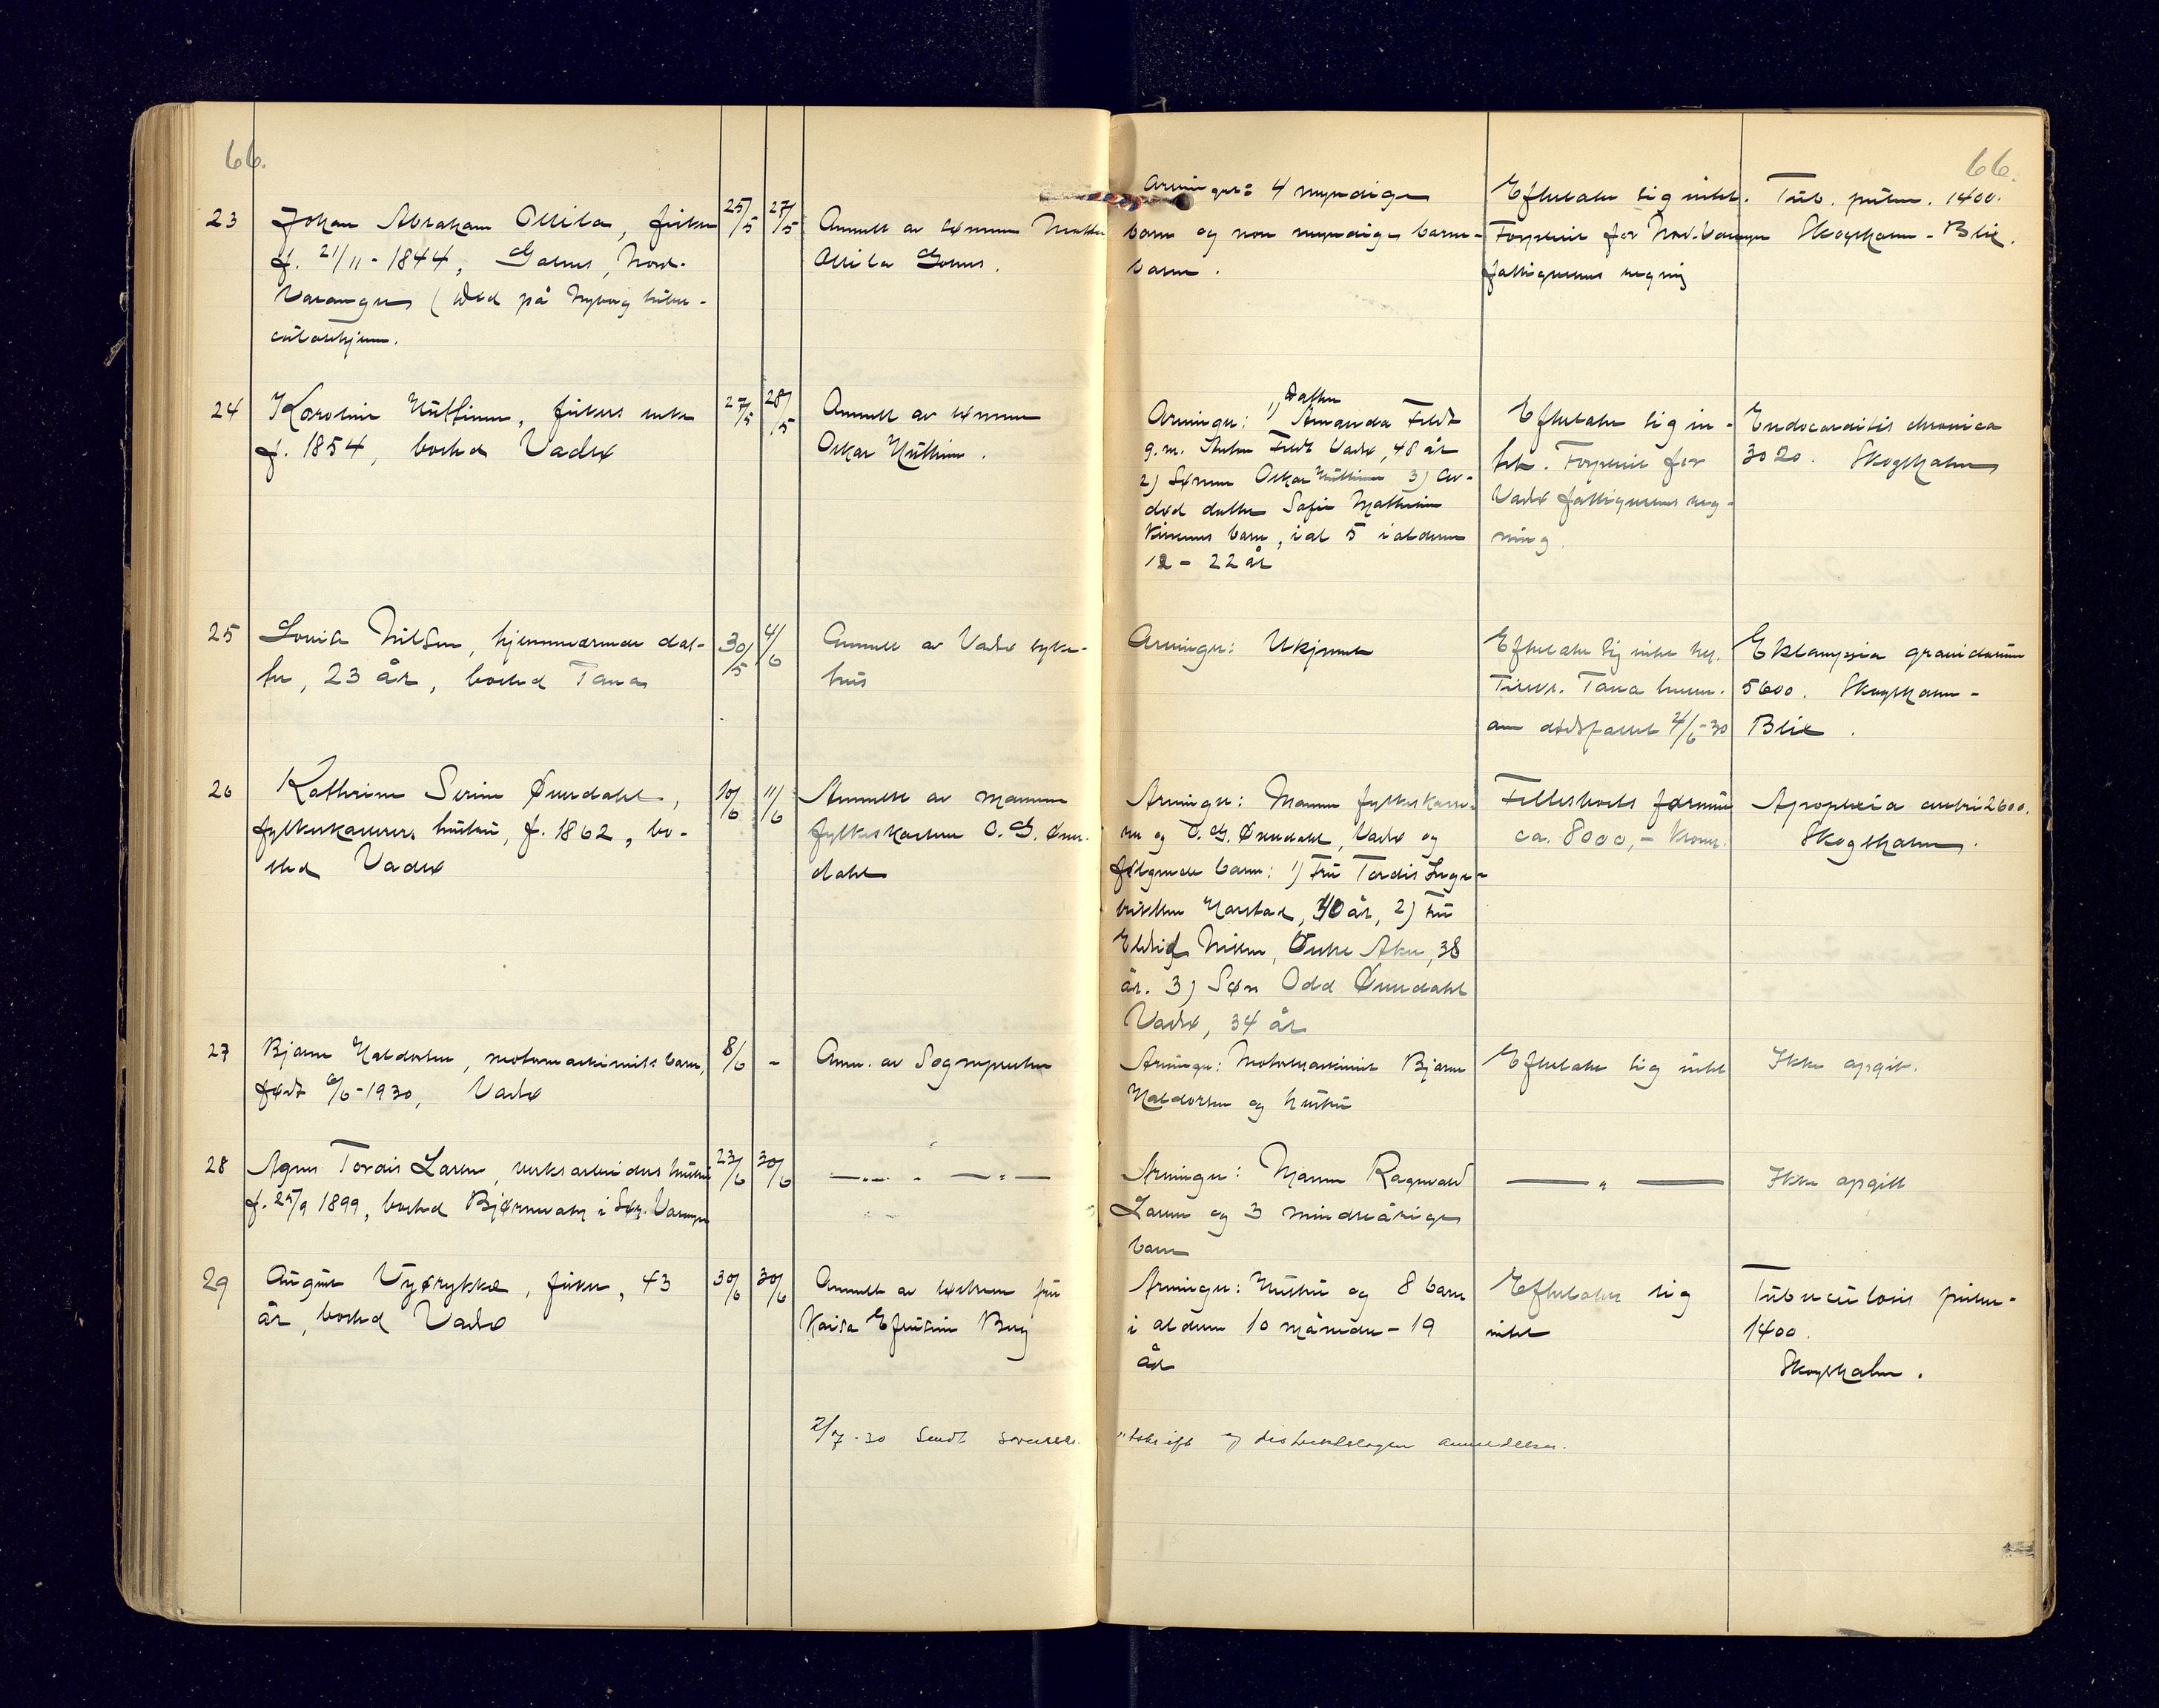 66.
66.
23
Johan Abraham Ollila, fisker
f. 21/11 - 1844, Golnes, Nord-
Varanger (Død på Nyborg tuber-
culosehjem.
25/5
27/5
Anmeldt av sønnen
Ollila Golnes.
Arvinger: 4 myndige
barn og noen myndige barne-
barn.
Efterlater sig intet.
Forpleiet for Nord-Varanger
fattigvesens regning
Tub. pulm. 1400.
Skogsholm - Blix.
24
Karoline Huttinen, fiskers enke
f. 1854, bosted Vadsø
27/5
28/5
Anmeldt av sønnen
Oskar Huttinen.
Datter
Arvinger: 1) Amanda Feldt
g.m. Feldt Vadsø, 48 år
2) Sønnen Oskar Huttinen 3) Av-
død datter Sofie Mathisen
barn, ialt 5 i alderen
12 - 22 år
Efterlater sig in-
tet. Forpleiet for
Vadsø fattigvesens reg-
ning.
Endocarditis chronica
3020. Skogsholm
25
Lovise Nilsen, hjemmeværende dat-
ter, 23 år, bosted Tana
30/5
4/6
Anmeldt av Vadsø syke-
hus
Arvinger: Ukjent
Efterlater sig intet
Tana
om dødsfallet 4/6-30
Eklampsia gravidarum
5600. Skogsholm -
Blix.
26
Kathrine Serine Ørnudahl,
fylkeskasserers hustru, f. 1862, bo-
sted Vadsø
10/6
11/6
Anmeldt av mannen
fylkeskasserer O. G.
dahl
Arvinger: Mannen fylkeskasse-
rer og O. G. Vadsø og
følgende barn: 1) Fru Tordis Inge-
briktsen Harstad, 40 år, 2) Fru
Nilsen, Aker, 38
år. 3) Søn Odd
Vadsø, 34 år
Fellesboets formue
ca. 8000,- kroner.
Apoplexia cerebri 2600.
Skogsholm.
27
Bjarne Haldorsen, motormaskinists barn,
født 6/6-1930, Vadsø
8/6
-
Anm. av Sognepresten
Arvinger: Motormaskinist Bjarne
Haldorsen og hustru
Efterlater sig intet
Ikke opgit.
28
Agnes Tordis Larsen, verksarbeiders hustru
f. 25/9 1899, bosted Bjørnevatn i Sør-Varanger
23/6
30/6
— " — " —
Arvinger: Mannen Ragnvald
Larsen og 3 mindreårige
barn
— " —
Ikke opgitt
29
August Vyørykkä, fisker, 43
år, bosted Vadsø
30/6
30/6
Anmeldt av søsteren fru
Kaisa Efrosine Berg
Arvinger: Hustru og 8 barn
i alderen 10 måneder - 19
år
Efterlater sig
intet
Tuberculosis pulm.
1400.
Skogsholm.
2/7-30 Sendt sorenskr. utskrift og distriktslægen anmeldelser.